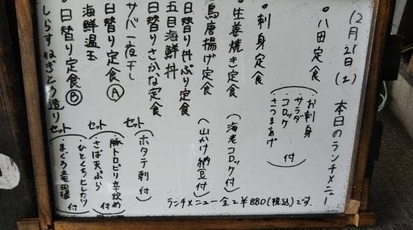 12月21日(土) 本日のランチメニュー
・八田定食
お刺身
サラダ
コロッケ
さつまあげ 付
・刺身定食
・生姜焼き定食
(海老コロッケ付)
・鳥唐揚げ定食
(山かけ納豆付)
日替り丼ぶり定食
五目海鮮丼
日替りさかな定食
サバ一夜干し
(ホタテ刺付)
日替り定食Ⓐ
海鮮温玉
セット
・豚トロピリ辛炒め 付
日替り定食Ⓑ
しらすねぎとろ造り
セット
ランチメニュー全て¥880(税込)です。